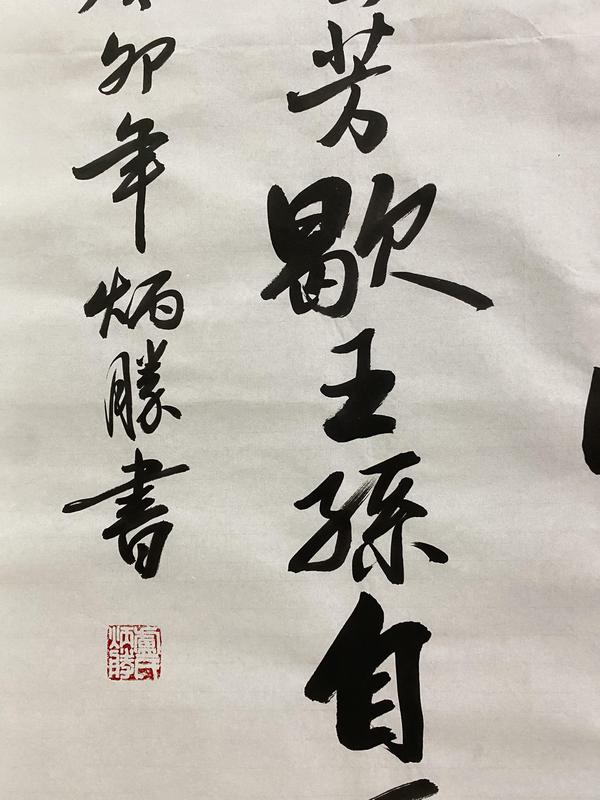 芳歇王孫自
卯年炳勝書
盧氏炳勝